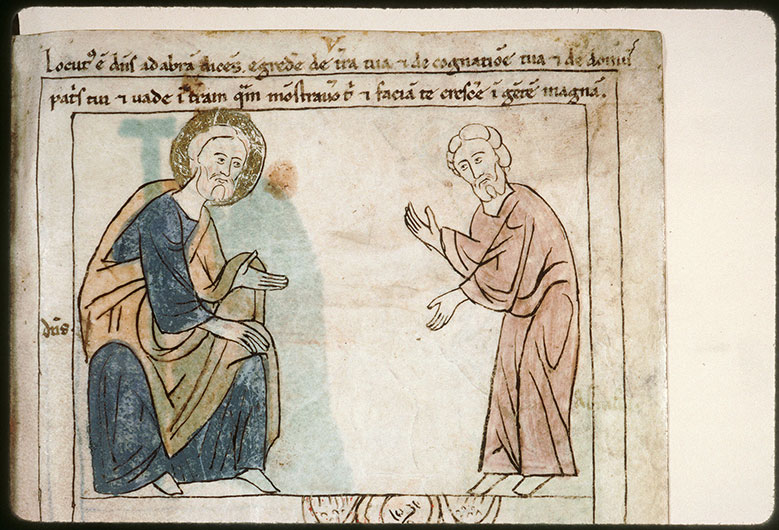 Locut' ē dn̄s ad abrā dicēs. egrede de t̄ra tua ⁊ de cognatiōe tua ⁊ de domū
pat̄s tui ⁊ uade ī t̄ram q̄m mōstrauo t' ⁊ faciā te cresc̄e ī gētē magnā.
dn̄s.